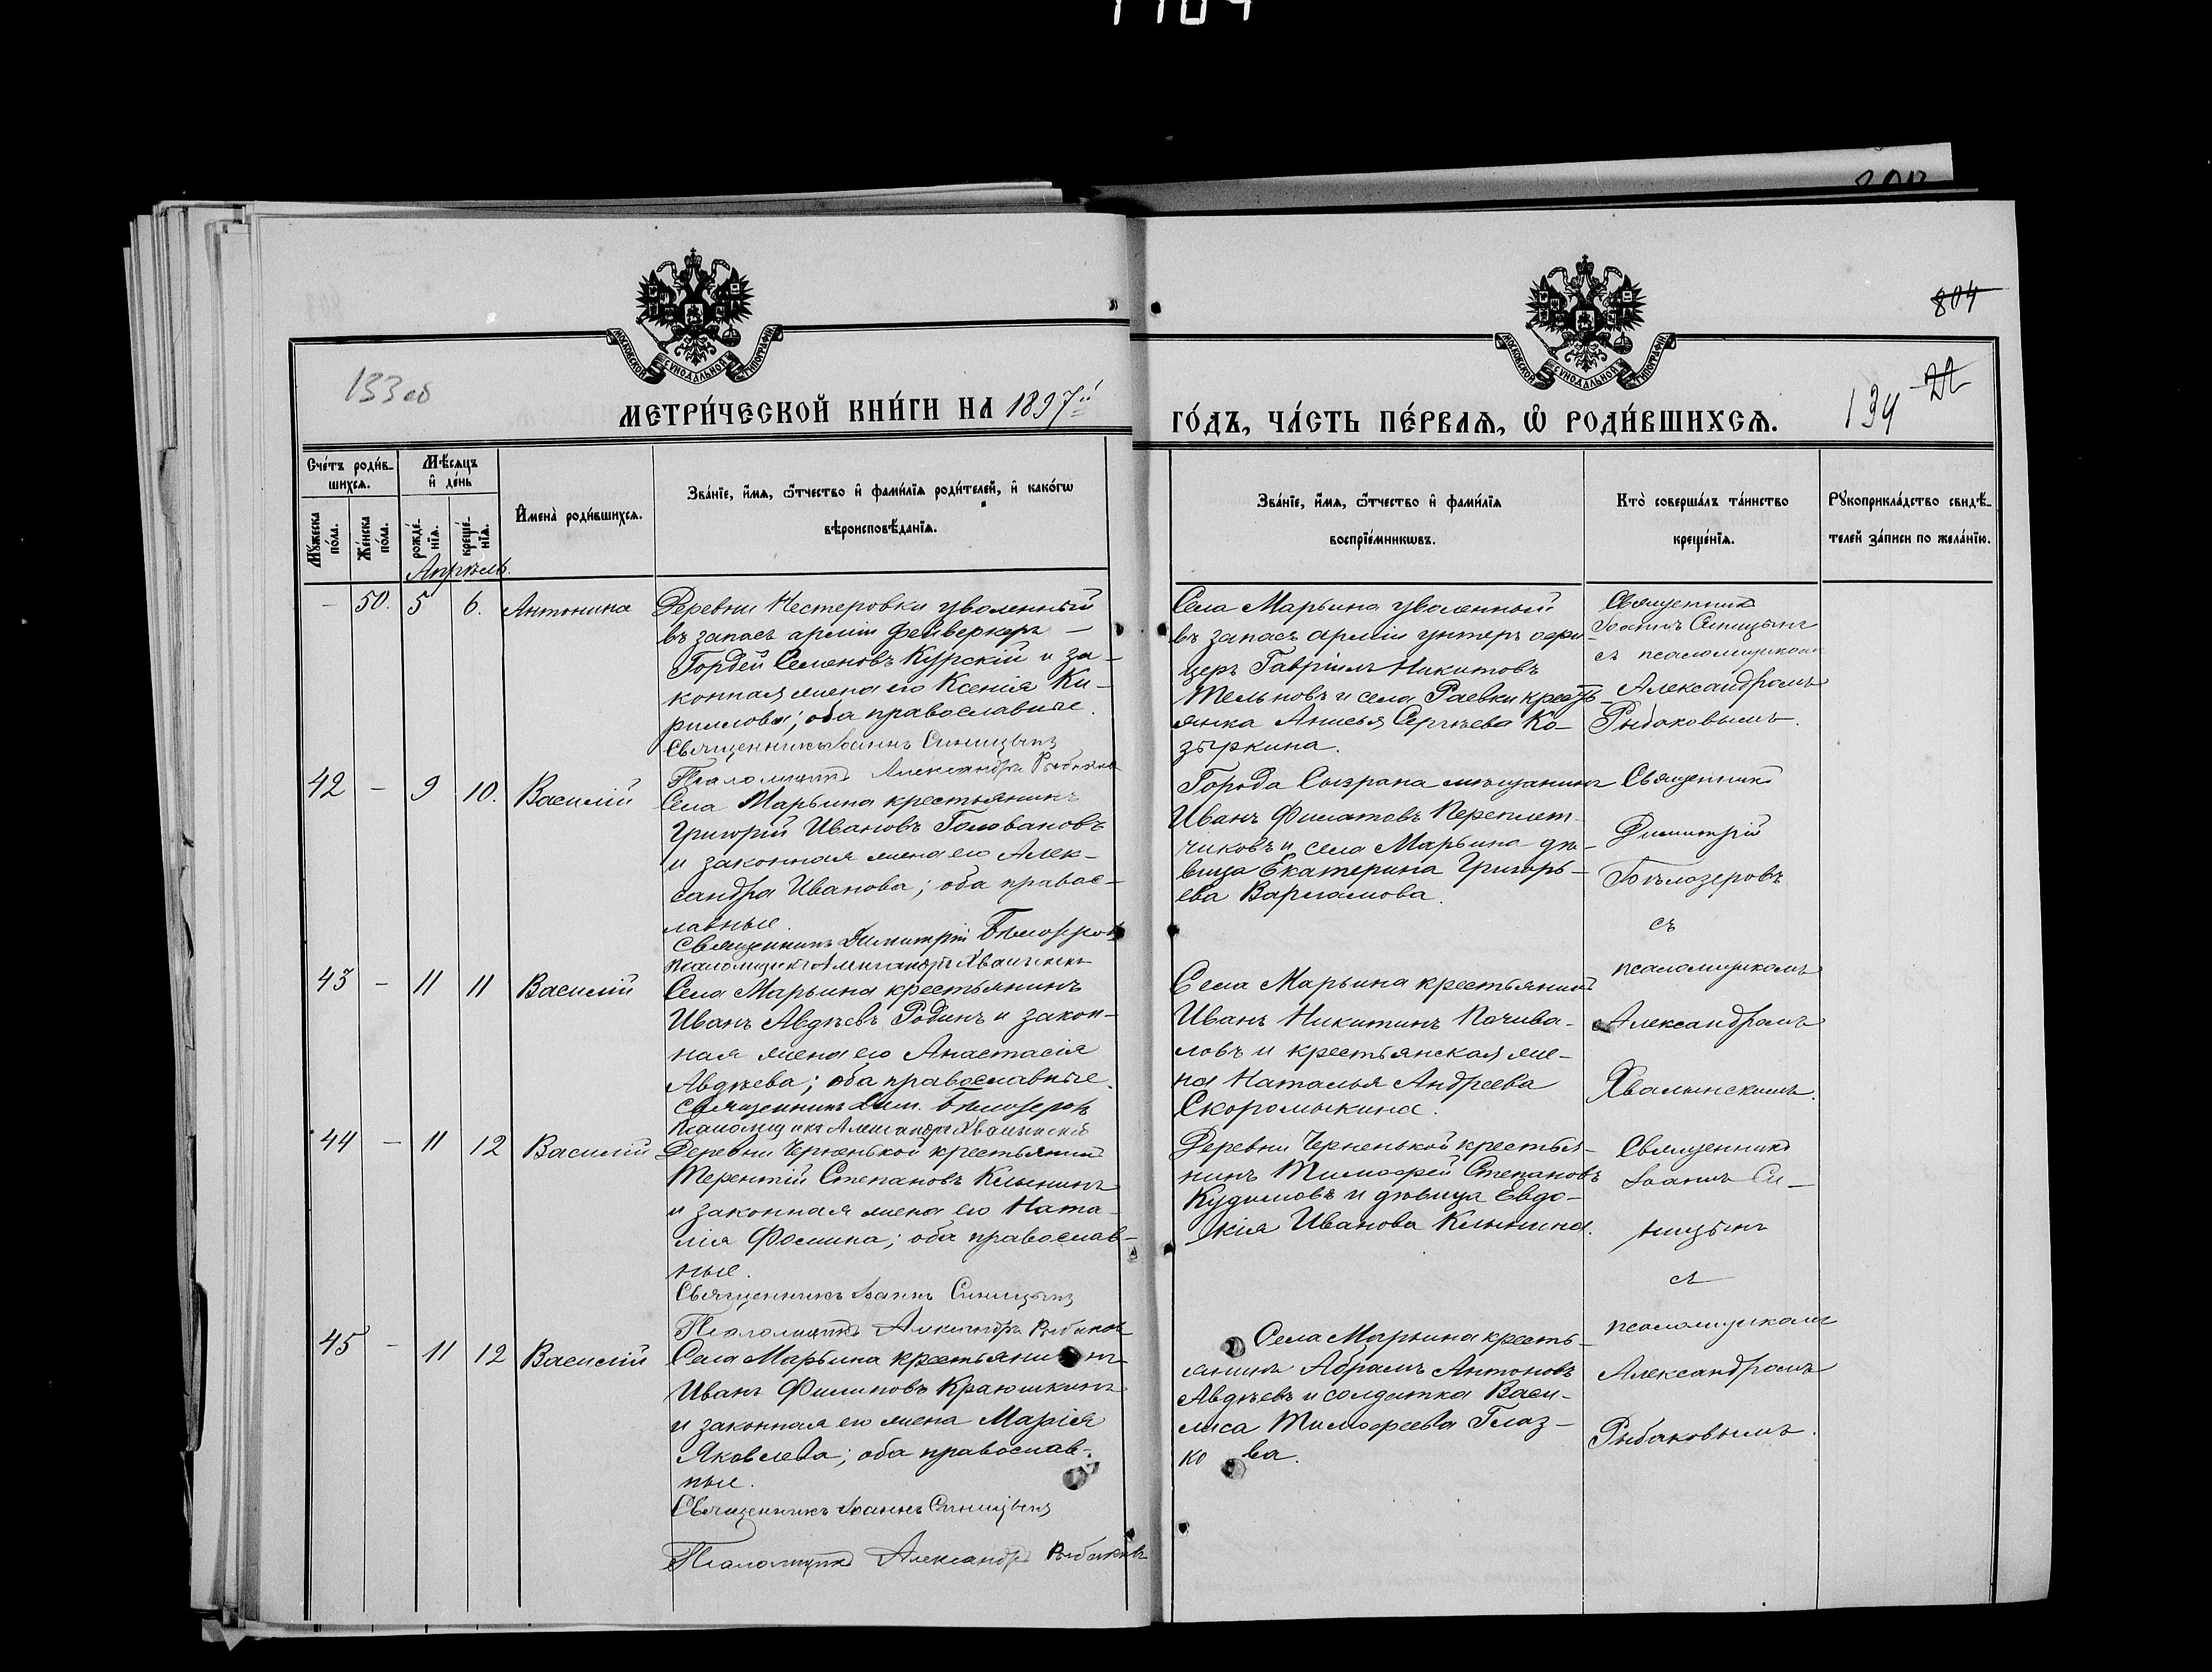 804
133 об
134
22
МЕТРИЧЕСКОЙ КНИГИ НА 1897й
ГОДЪ, ЧАСТЬ ПЕРВАЯ, Ѡ РОДИВШИХСЯ.
МОСКОВСКОЙ СѴНОДАЛЬНОЙ ТИПОГРАФІИ
МОСКОВСКОЙ СѴНОДАЛЬНОЙ ТИПОГРАФІИ
Счетъ родив-
шихся.
Мужеска пола.
Женска пола.
Мѣсяцъ
и день
рожде-
нія.
креще-
нія.
Имена родившихся.
Званіе, имя, ѿчество и фамилія родителей, и какогѡ
вѣроисповѣданія.
Званіе, имя, ѿчество и фамилія
воспріемникѡвъ.
Кто совершалъ таинство
крещенія.
Рукоприкладство свидѣ-
телей записи по желанію.
Апрѣль.
– 50. 5 6. Антонина
Деревни Нестеровки уволенный
въ запасъ арміи фейверкеръ –
Гордей Семеновъ Курскій и за-
конная жена его Ксенія Ки-
риллова; оба православные.
Священникъ Іоаннъ Синицынъ
Псаломщикъ Александръ Рыбаковъ
Села Марьина уволенный
въ запасъ арміи унтеръ офи-
церъ Гавріилъ Никитовъ
Мельновъ и села Раевки кресть-
янка Анисья Сергѣева Ко-
зыркина.
Священникъ
Іоаннъ Синицынъ
съ псаломщикомъ
Александромъ
Рыбаковымъ.
42 – 9 10. Василій
Села Марьина крестьянинъ
Григорій Ивановъ Головановъ
и законная жена его Алек-
сандра Иванова; оба правос-
лавные.
Священникъ Димитрій Бѣлозеровъ
Псаломщикъ Александръ Хвалынскій
Города Сызрана мѣщанинъ
Иванъ Филатовъ Переплет-
чиковъ и села Марьина дѣ-
вица Екатерина Григорь-
ева Варламова.
Священникъ
Димитрій
Бѣлозеровъ
съ
псаломщикомъ
Александромъ
Хвалынскимъ.
43 – 11 11 Василій
Села Марьина крестьянинъ
Иванъ Авдѣевъ Родинъ и закон-
ная жена его Анастасія
Авдѣева; оба православные.
Священникъ Дим. Бѣлозеровъ
Псаломщикъ Александръ Хвалынскій
Села Марьина крестьянинъ
Иванъ Никитинъ Почива-
ловъ и крестьянская же-
на Наталья Андреева
Скоромыкина.
44 – 11 12 Василій
Деревни Черненькой крестьянинъ
Терентій Степановъ Клынинъ
и законная жена его Ната-
лія Фомина; оба православ-
ные.
Священникъ Іоаннъ Синицынъ
Псаломщикъ Александръ Рыбаковъ
Деревни Черненькой крестья-
нинъ Тимофей Степановъ
Кудимовъ и дѣвица Евдо-
кія Иванова Клынина.
Священникъ
Іоаннъ Си-
ницынъ
съ
псаломщикомъ
Александромъ
Рыбаковымъ.
45 – 11 12 Василій
Села Марьина крестьянинъ
Иванъ Филиповъ Краюшкинъ
и законная его жена Марія
Яковлева; оба православ-
ные.
Священникъ Іоаннъ Синицынъ
Псаломщикъ Александръ Рыбаковъ
Села Марьина кресть-
янинъ Абрамъ Антоновъ
Авдѣевъ и солдатка Васи-
лиса Тимофеева Глаз-
кова.